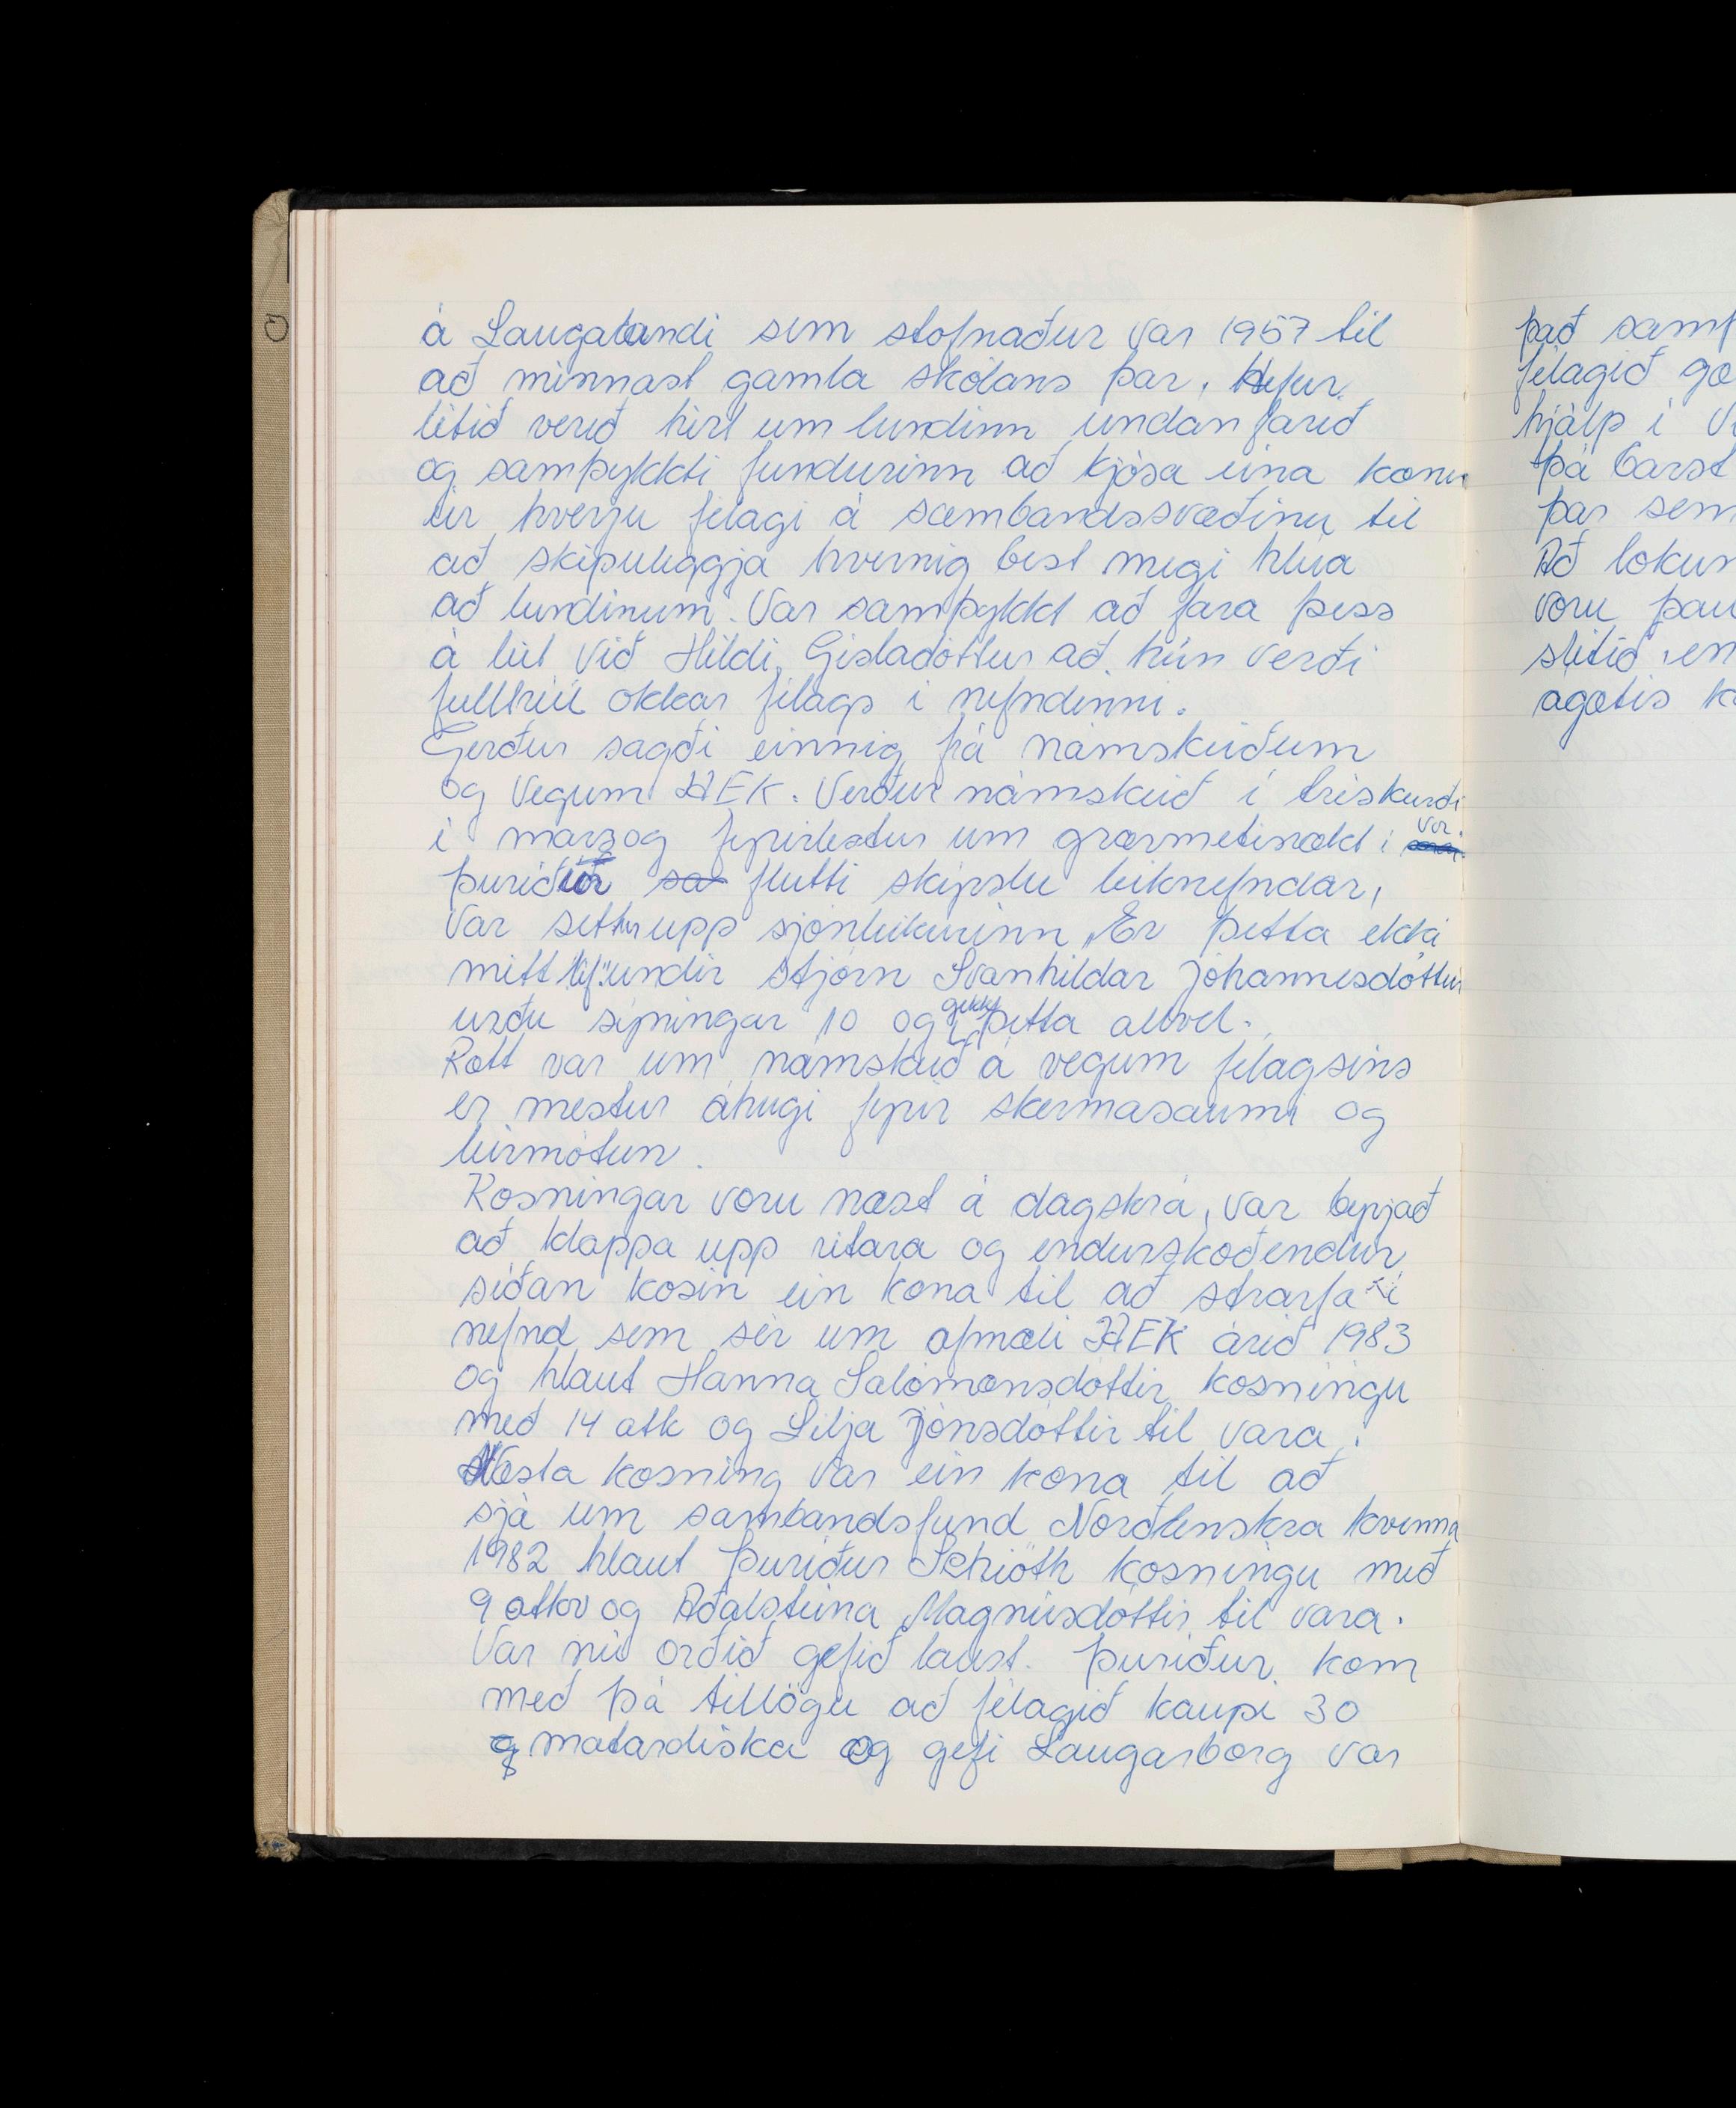 á Laugalandi sem stofnaður var 1957 til
að minnast gamla skólans þar. Hefur
lítið verið hirt um lundinn undanfarið
og samþykkti fundurinn að kjósa eina konu
úr hverju félagi á sambandssvæðinu til
að skipuleggja hvernig best megi hlúa
að lundinum. Var samþykkt að fara þess
á leit við Hildi Gísladóttur að hún verði
fulltrúi okkar félags í nefndinni.
Gerður sagði einnig frá námskeiðum
og vegum HEK. Verður námskeið í tréskurði
í marz og fyrirlestur um grænmetirækt í vor.
Þuríður sa flutti skýrslu leiknefndar,
Var settur upp sjónleikurinn „Er þetta ekki
mitt líf" undir stjórn Svanhildar Jóhannesdóttur
urðu sýningar 10 og gekk þetta allvel.
Rætt var um námskeið á vegum félagsins
er mestur áhugi fyrir skermasaumi og
leirmótun.
Kosningar voru næst á dagskrá, var byrjað
að klappa upp ritara og endurskoðendur
síðan kosin ein kona til að starfa í
nefnd sem sér um afmæli HEK árið 1983
og hlaut Hanna Salómonsdóttir kosningu
með 14 atk og Lilja Jónsdóttir til vara.
Næsta kosning var ein kona til að
sjá um sambandsfund Norðlenskra kvenna
1982 hlaut Þuríður Schiöth kosningu með
9 atkv og Aðalsteina Magnúsdóttir til vara.
Var nú orðið gefið laust. Þuríður kom
með þá tillögu að félagið kaupi 30
matardiska og gefi Laugarborg var
það samþ
félagið gæ
hjálp í
þá barst
þar sem
Að lokum
voru þau
slitið en
ágætis